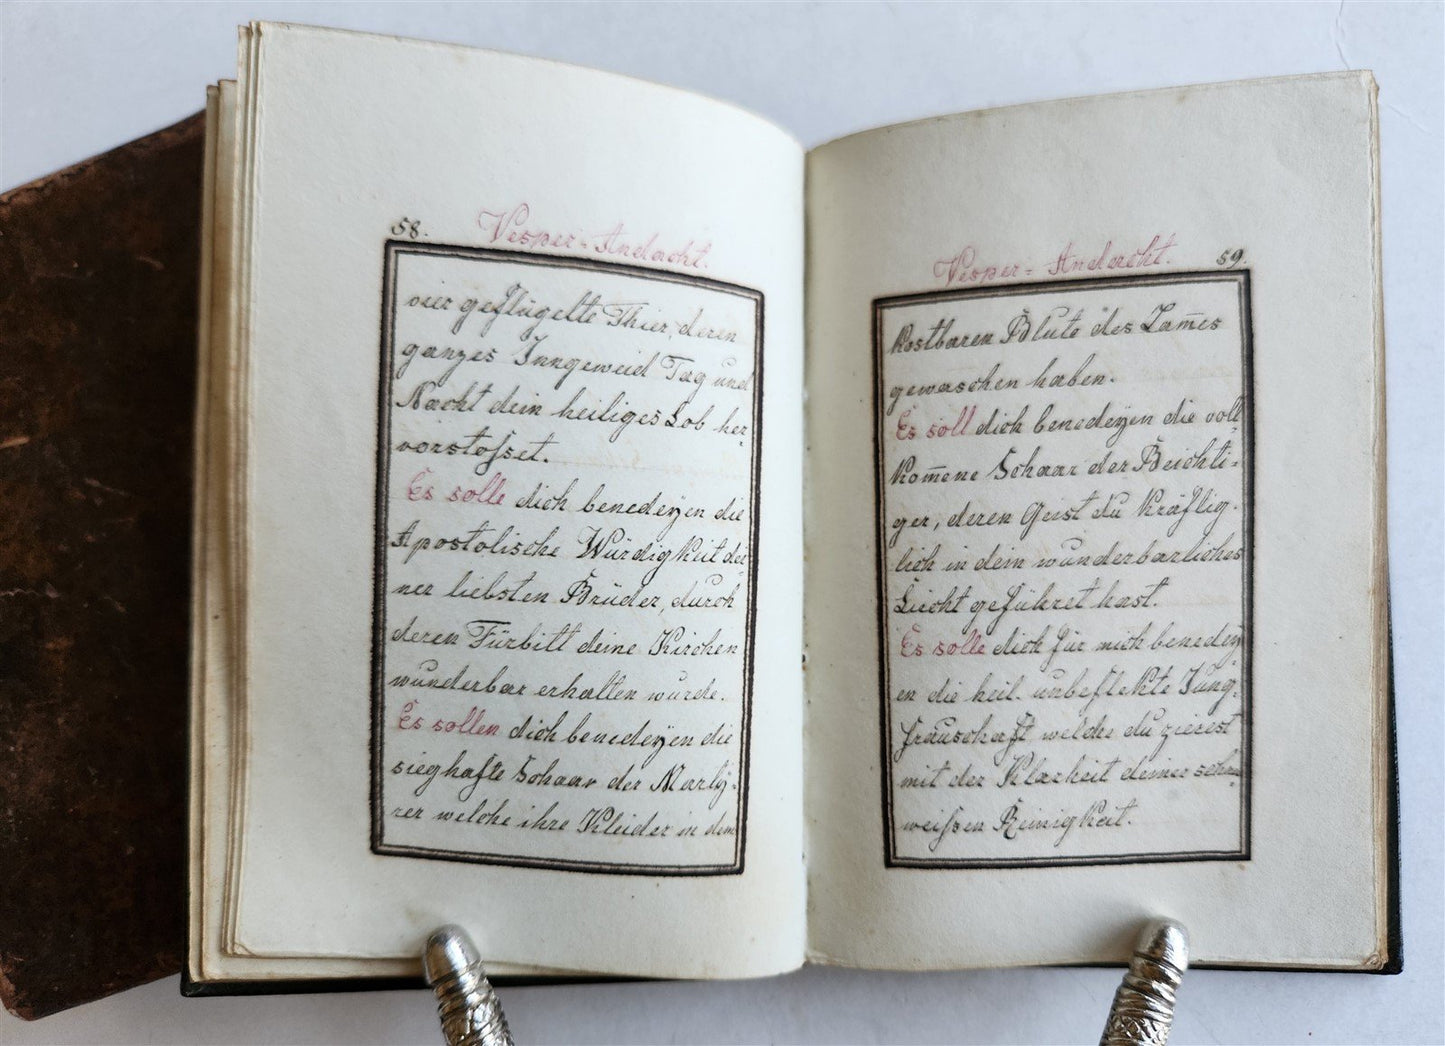 58.
Vesper-Andacht.
vier geflügelte Thier, deren
ganzes Inngeweid Tag und
Nacht dein heiliges Lob her-
vorstosset.
Es solle dich benedeÿen die
Apostolische Würdigkeit dei
ner liebsten Brüder, durch
deren Fürbitt deine Kirchen
wunderbar erhalten wurde.
Es sollen dich benedeÿen die
sieghafte Schaar der Martÿ-
rer welche ihre Kleider in dem
Vesper-Andacht.
59.
kostbaren Blute des Lam̅es
gewaschen haben.
Es soll dich benedeÿen die voll-
kom̅ene Schaar der Beichti-
ger, deren Geist du kräftig-
lich in dein wunderbarliches
Liecht geführet hast.
Es solle dich für mich benedeÿ
en die heil. unbeflekte Jung-
frauschaft welche du zierest
mit der Klarheit deiner schnee
weissen Reinigkeit.